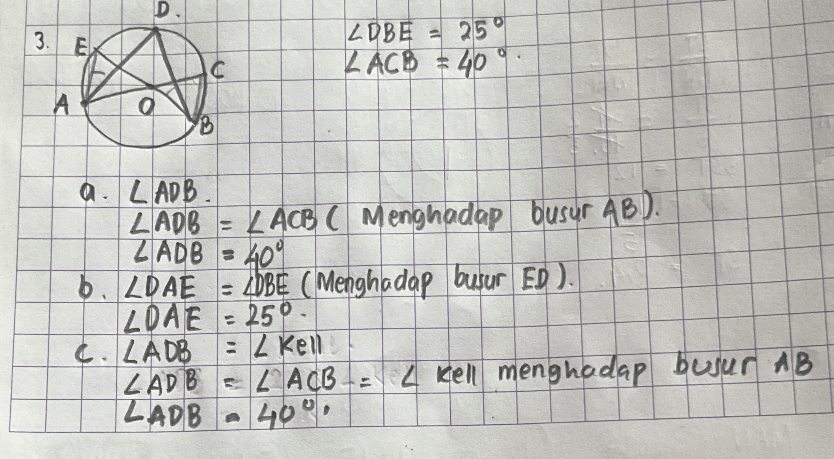 3.
D.
E
C
A
O
B
∠DBE = 25°
∠ACB = 40°.
a. ∠ADB.
∠ADB = ∠ACB ( Menghadap busur AB).
∠ADB = 40°
b. ∠DAE = ∠DBE (Menghadap busur ED).
∠DAE = 25°.
c. ∠ADB = ∠ Kell
∠ADB = ∠ ACB = ∠ Kell menghadap busur AB
∠ADB = 40°.